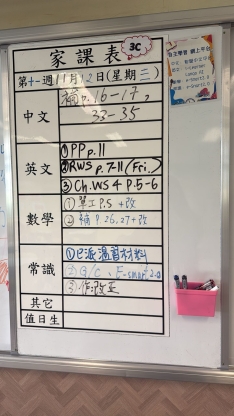 家課表
3C
第十一週 11月12日(星期三)
中文
補p.16-17,
33-35
英文
①PP p.11
②RWS p.7-11 (Fri.)
③Ch.WS 4 P.5-6
數學
①單工P.5 +改
②補 P.26,27+改
常識
①已派溫習材料
②G/C、E-smart 2.0
③作改正
其它
值日生
自主學習 網上平台